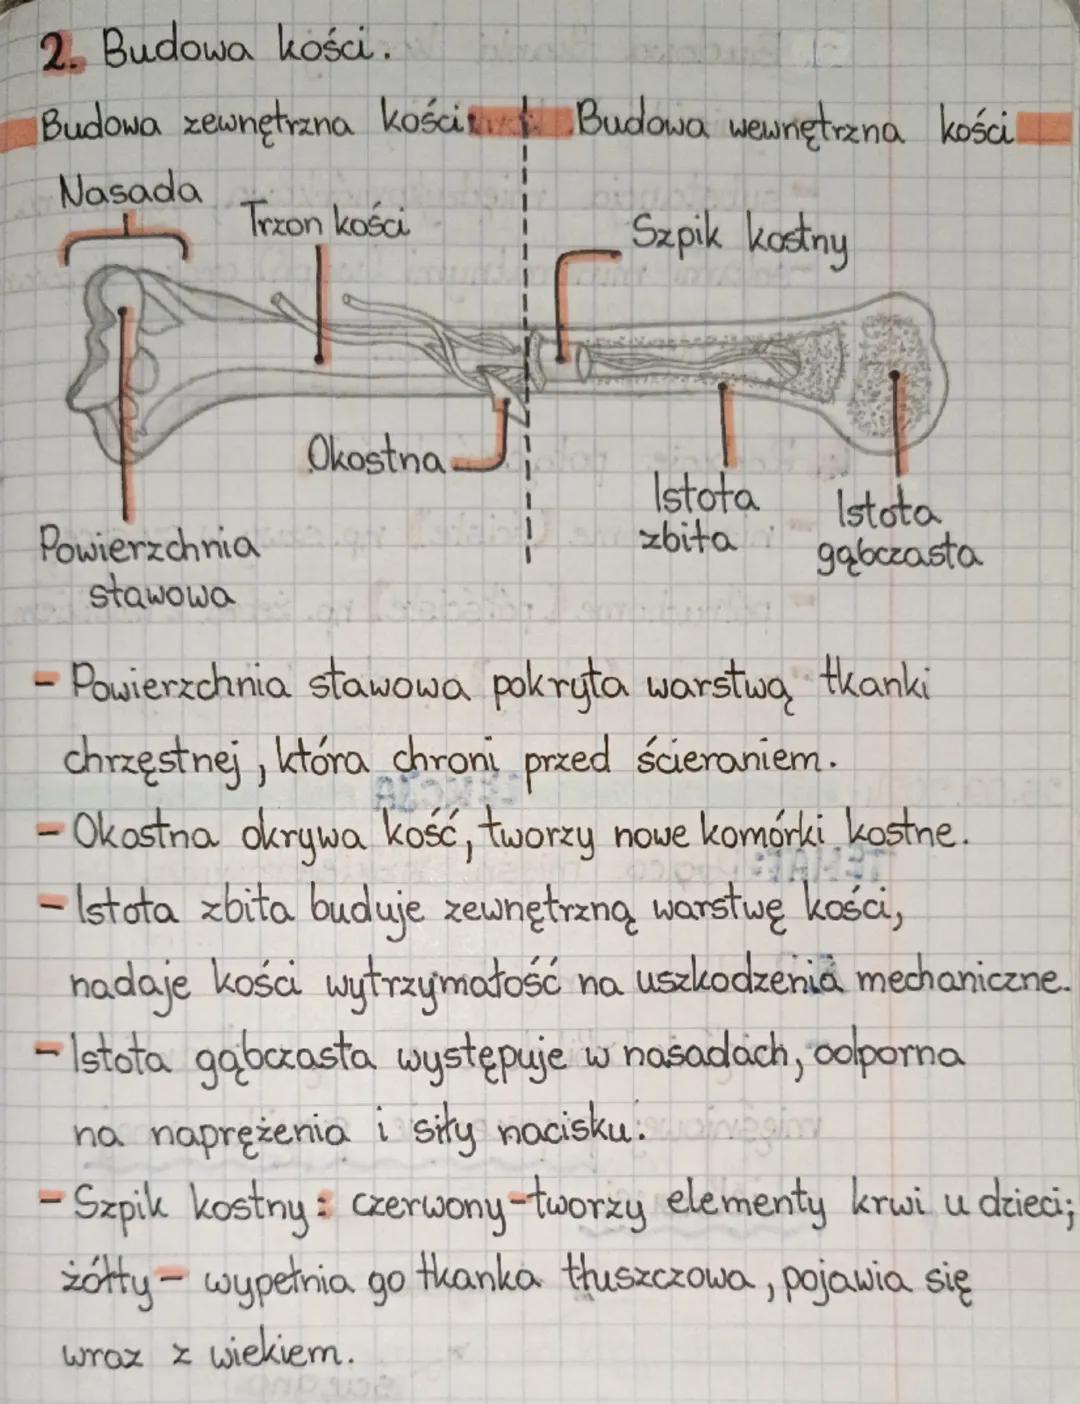 2. Budowa kości.
Budowa zewnętrzna kości
Budowa wewnętrzna kości
Nasada
Trzon kości
Szpik kostny
Okostna
Istota
zbita
Istota
gąbczasta
Powierzchnia
stawowa
- Powierzchnia stawowa pokryta warstwą tkanki
chrzęstnej, która chroni przed ścieraniem.
- Okostna okrywa kość, tworzy nowe komórki kostne.
- Istota zbita buduje zewnętrzną warstwę kości,
nadaje kości wytrzymałość na uszkodzenia mechaniczne.
- Istota gąbczasta występuje w nasadach, odporna
na naprężenia i siły nacisku.
- Szpik kostny: czerwony-tworzy elementy krwi u dzieci;
żółty - wypełnia go tkanka tłuszczowa, pojawia się
wraz z wiekiem.